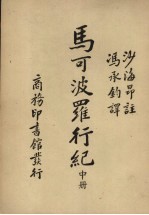 沙海昂註
馮承鈞譯
馬可波羅行紀 中册
商務印書館發行